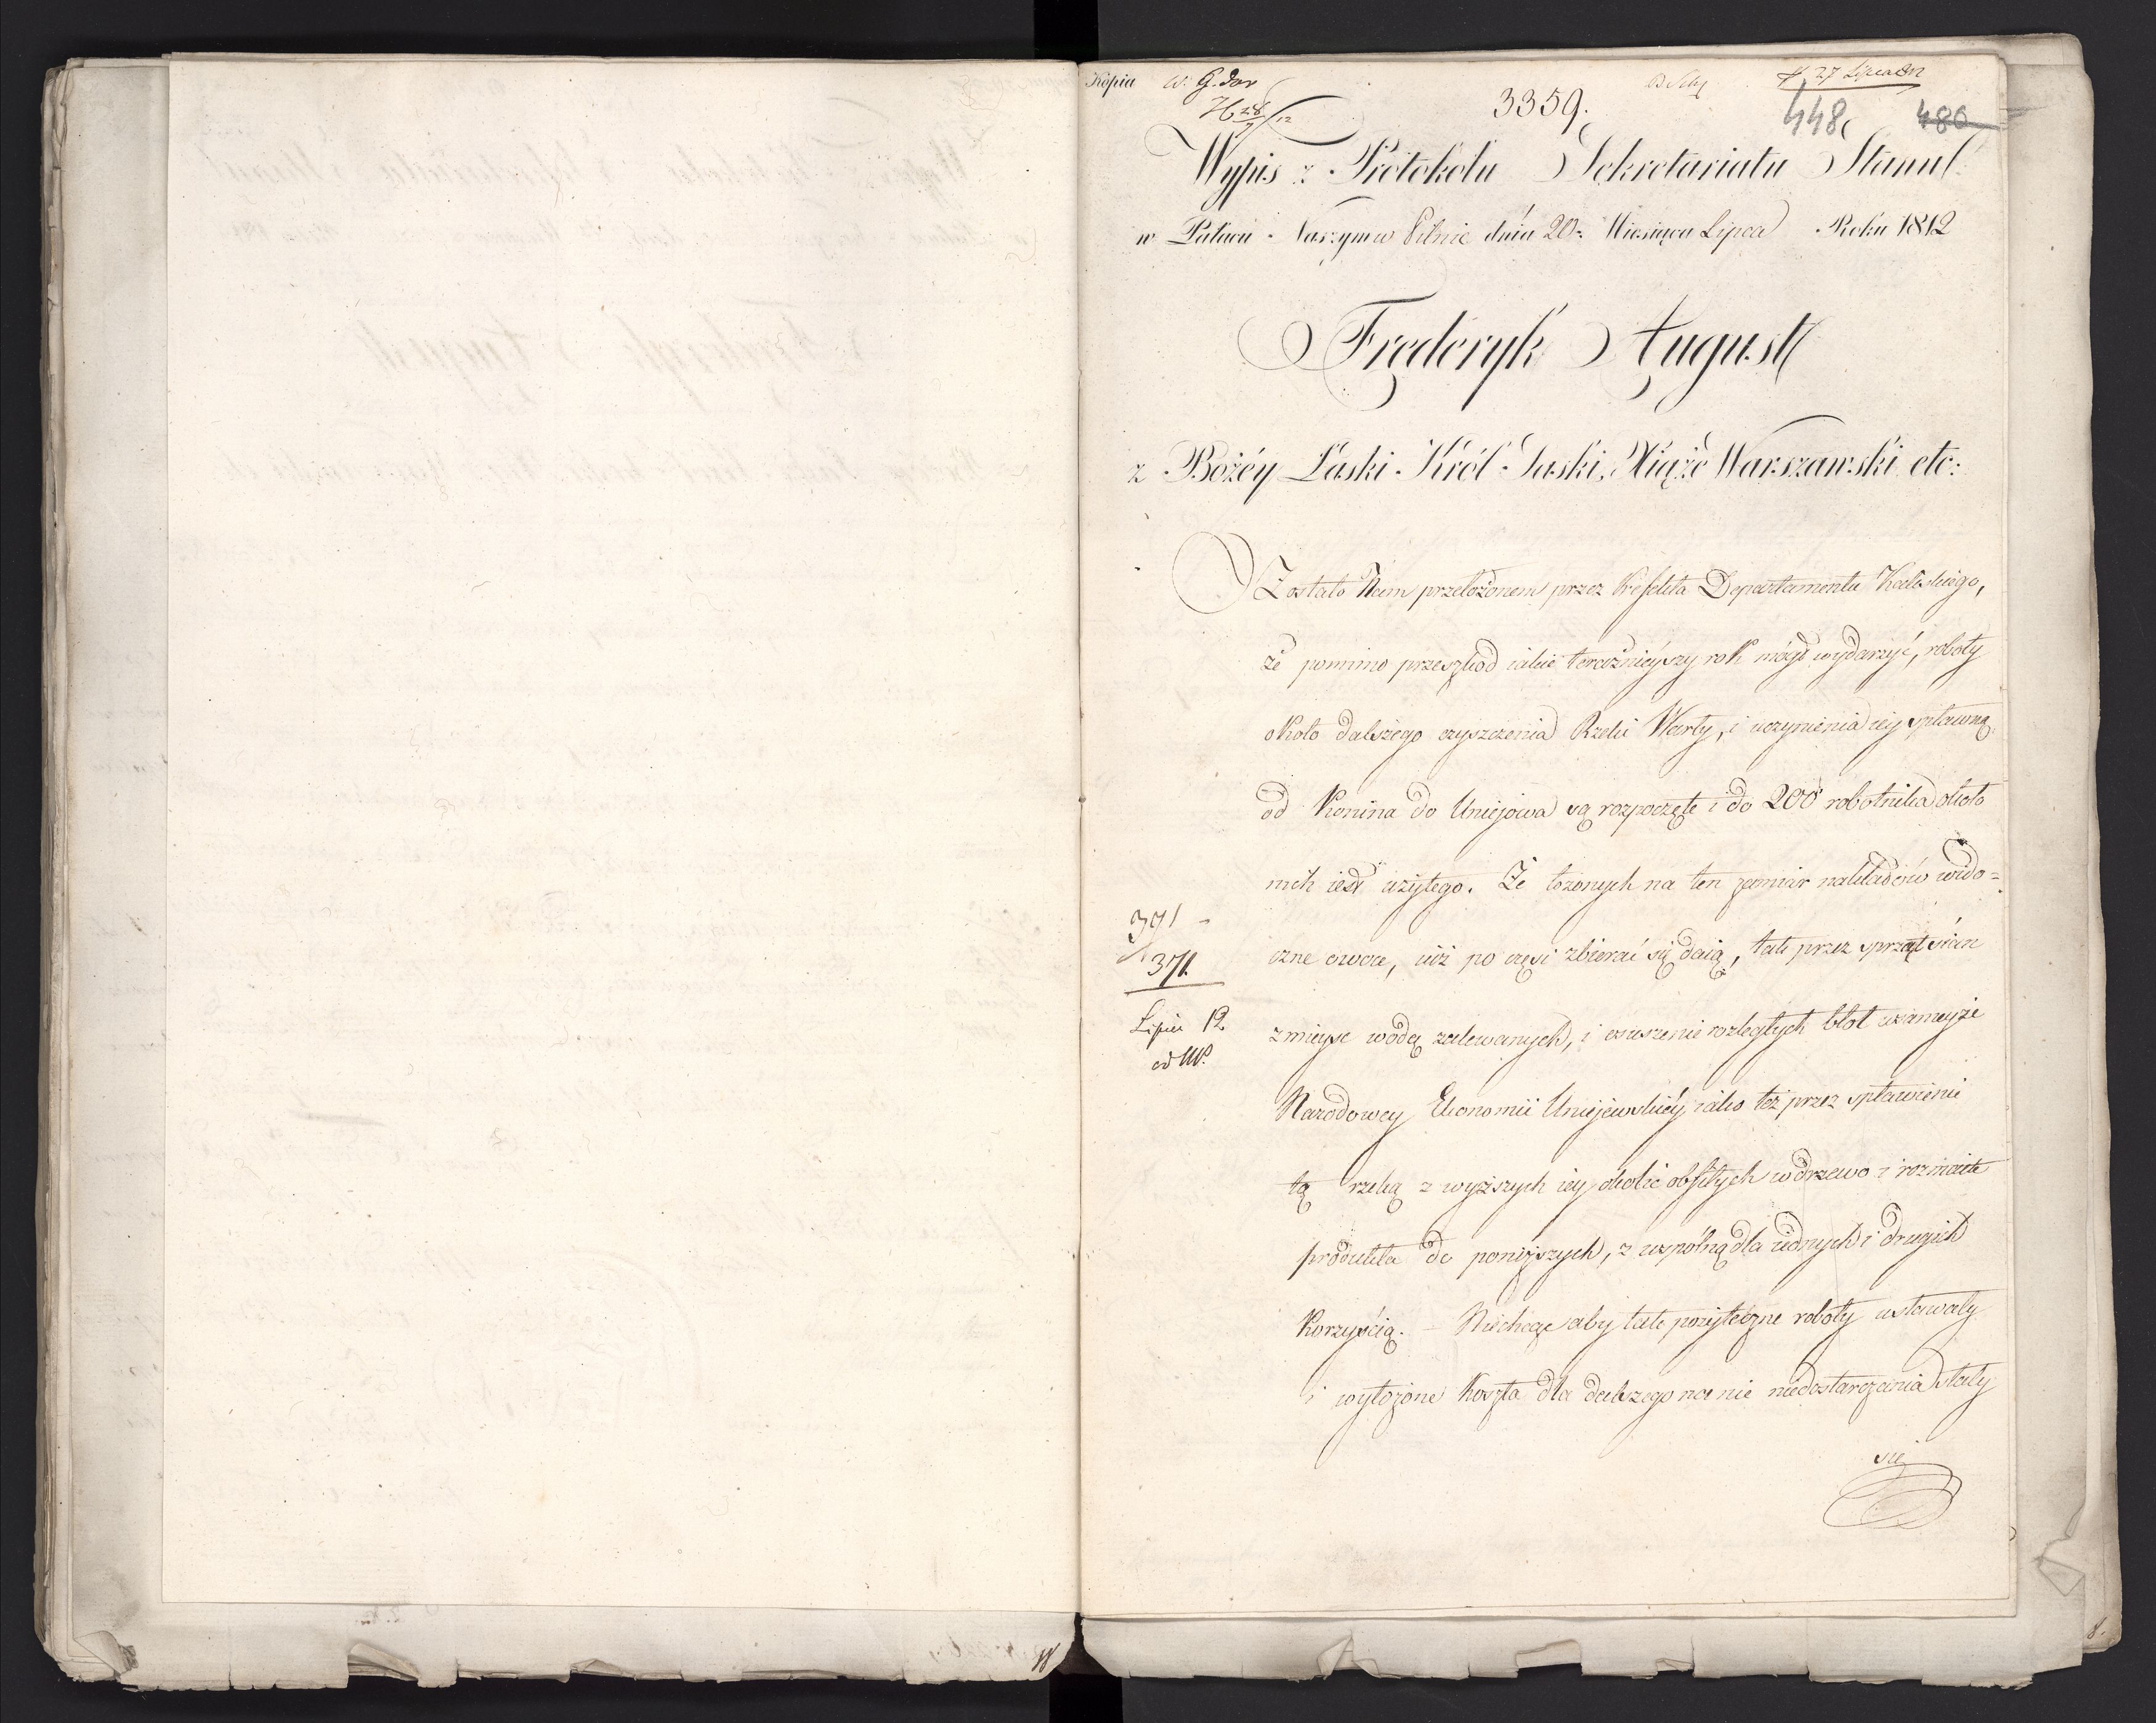 Kopia
3359.
27 Lipca 812
448
480
Wypis z Protokołu Sekretariatu Stanu
w Pałacu Naszym w Pilnic dnia 20. Miesiąca Lipca Roku 1812
Fryderyk August
z Bożéy Łaski Król Saski, Xiąże Warszawski etc:
Zostało Nam przełożonem przez Prefekta Departamentu Kaliskiego,
że pomimo przeszkod iakie teraźnieyszy rok mógł wydarzyć, roboty
około dalszego czyszczenia Rzeki Warty, i uczynienia iey spławną
od Konina do Uniejowa są rozpoczęte i do 200 robotnika około
nich iest użytego. Że łożonych na ten zamiar nakładów wido=
czne owoce, iuż po części zbierać się daią, tak przez sprzęt sian
z mieysc wodą zalewanych, i osuszenie rozległych błot w sameyże
Narodowey Ekonomii Uniejewskiéy iako też przez spławienie
tą rzeką z wyższych iey okolic obfitych w drzewo i rozmaite
produkta do poniższych, z wspólną dla iednych i drugich
korzyścią. – Niechcąc aby tak pożyteczne roboty ustawały
i wyłożone koszta dla dalszego na nie niedostarczania stały
się
391
371
Lipiec 12